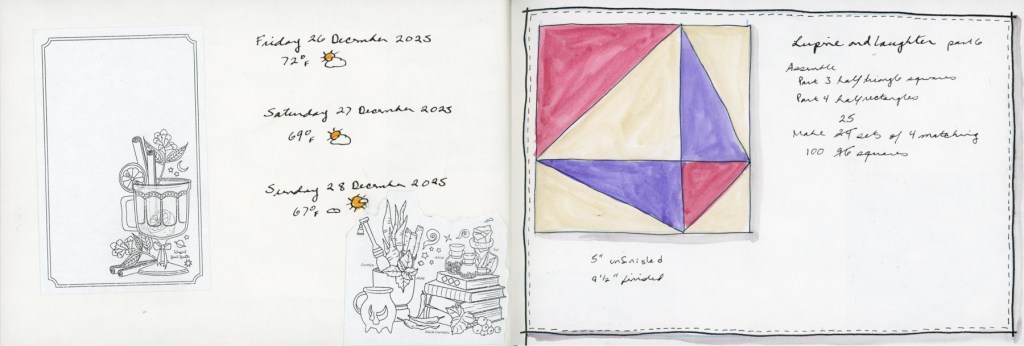 Friday 26 December 2025
72°F
Saturday 27 December 2025
69°F
Sunday 28 December 2025
67°F
Lupine and Laughter part 6
Assemble
Part 3 half triangle squares
Part 4 half rectangles
25
Make 24 sets of 4 matching
100 96 squares
5" unfinished
4 1/2" finished